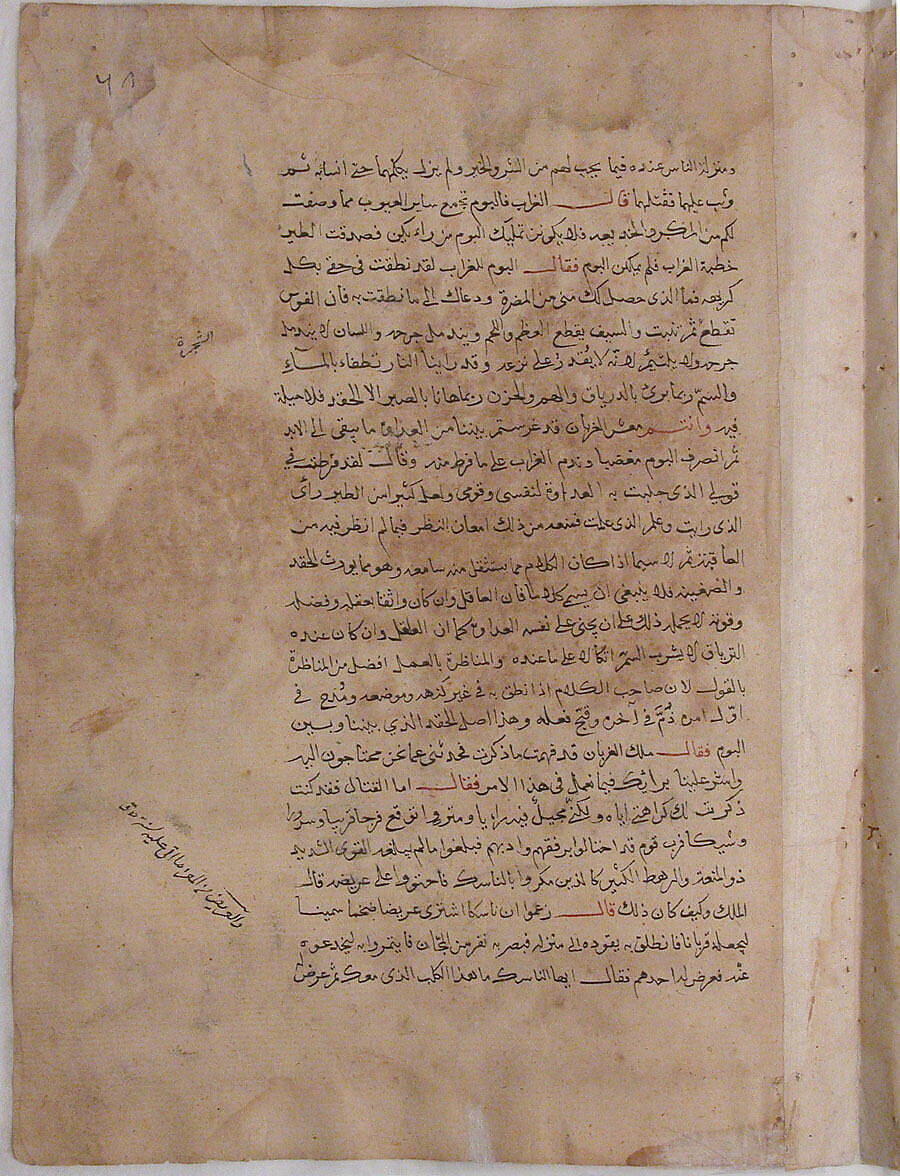 ٦٨
ومنزلة الناس عنده فيما يجب لهم من الشر والخير ولم يزل يكلمهما حتى انسابه ثم
وثب عليهما فقتلهما قال الغراب فالبوم تجمع ساير العيوب مما وصفت
لكم من المكر والخديعه فلا يكونن تمليك البوم من راءيكن فصدقت الطير
خطبة الغراب فلم يملكن البوم فقال البوم للغراب لقد نطقت في حقي بكل
كريهه فما الذي حصل لك مني من المضرة ودعاك الى ما نطقت به فان الفوس
تقطع ثم تنبت والسيف يقطع العظم واللحم ويندمل جرحه واللسان لا يندمل
جرحه ولا يلتئم لانه لا يقدر على نزعه وقد راينا النار تطفاء بالماء
والسم ربما برئ بالدرياق والهم والحزن ربما هانا بالصبر الا الحقد فلا حيلة
فيه وانتم معشر الغربان قد غرستم بيننا من العداوة ما يبقى الى الابد
ثم انصرف البوم مغضبا وندم الغراب على ما فرط منه وقال لقد فرطت في
قولي الذي جلبت به العداوة لنفسي وقومي ولعل كثيرا من الطير رأى
الذي رايت وعلم الذي علمت فمنعه من ذلك امعان النظر فيما لم انظر فيه من
العاقبة ثم لا سيما اذا كان الكلام مما يستثقل منه سامعه وهو مما يورث الحقد
والضغينه فلا ينبغي ان يسمى كلاما فان العاقل وان كان واثقا بعقله وفضله
وقوته لا يحمله ذلك على ان يجني على نفسه العداوة كما ان العاقل وان كان عنده
الترياق لا يشرب السم اتكالا على ما عنده والمناظرة بالعمل افضل من المناظرة
بالقول لان صاحب الكلام اذا نطق به في غير موضعه ومدح في
اول امره ذم في آخره وقبح فعله وهذا اصل الحقد الذي بيننا وبين
البوم فقال ملك الغربان قد فهمت ما ذكرت فحدثني عما نحن محتاجون اليه
واشر علينا برائك فيما نعمل في هذا الامر فقال اما القتال فقد كنت
ذكرت لك كراهتي اياه ولكني محيل فيه راءيا ومترو واتوقع فرجا قريبا وسرورا
وشيكا فرب قوم قد احتالوا برفقهم وادبهم فبلغوا ما لم يبلغه القوي الشديد
ذو المنعة والرهط الكثير كالذين مكروا بالناسك فاحتووا على عريضه قال
الملك وكيف كان ذلك قال زعموا ان ناسكا اشترى عريضا ضخما سمينا
ليجعله قربانا فانطلق به يقوده الى منزله فبصر به نفر من المجان فايتمروا به ليخدعوه
عنه فعرض له احدهم فقال ايها الناسك ما هذا الكلب الذي معك ثم عرض
الشجرة